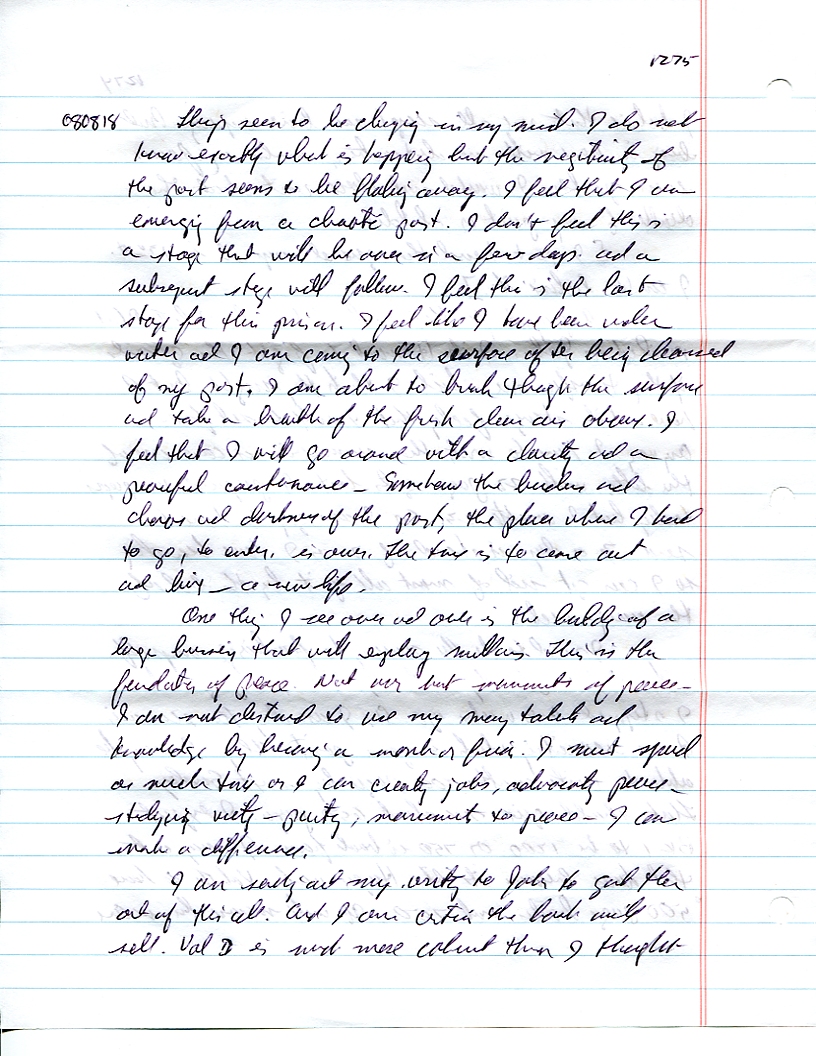 1275
080818 Things seem to be changing in my mind. I do not
know exactly what is happening but the negitivity of
the past seems to be flaking away. I feel that I am
emerging from a chaotic past. I don't feel this is
a stage that will be over in a few days and a
subsequent stage will follow. I feel this is the last
stage for this prison. I feel like I have been under
water and I am coming to the surface after being cleansed
of my past. I am about to break through the surface
and take a breath of the fresh clean air above. I
feel that I will go around with a clarity and a
peaceful countenance - Somehow the burden and
chaos and darkness of the past, the place where I had
to go, to enter, is over. The time is to come out
and live - a new life.
One thing I see over and over is the building of a
large business that will employ millions. This is the
foundation of peace. Not war but monuments of peace -
I am not destined to use my many talents and
knowledge by being a monk or friar. I must spend
as much time as I can creating jobs, advocating peace -
studying unity - purity, monument to peace - I can
make a difference.
I am sending out my writing to John to get them
out of this cell. And I am certain the book will
sell. Vol I is much more coherent than I thought